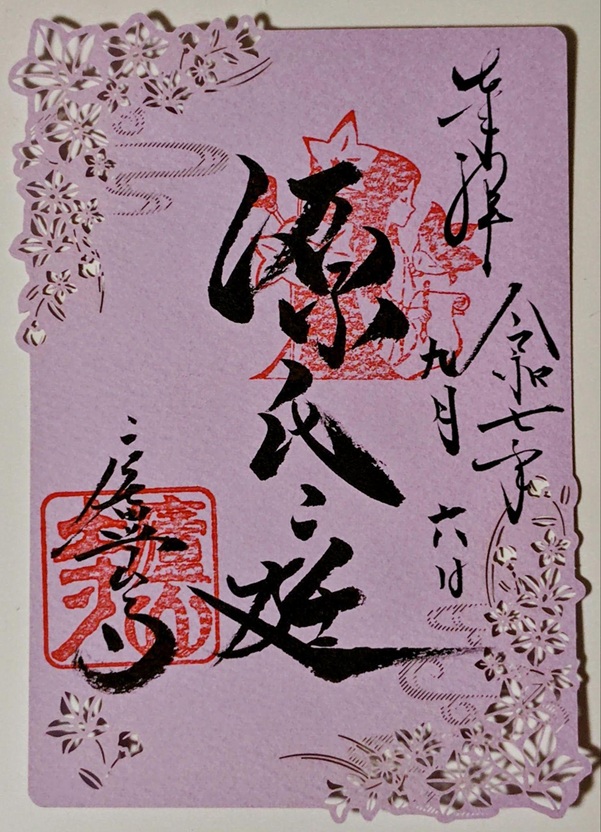 奉拝
令和七年
九月 六日
源氏之庭
廬山寺